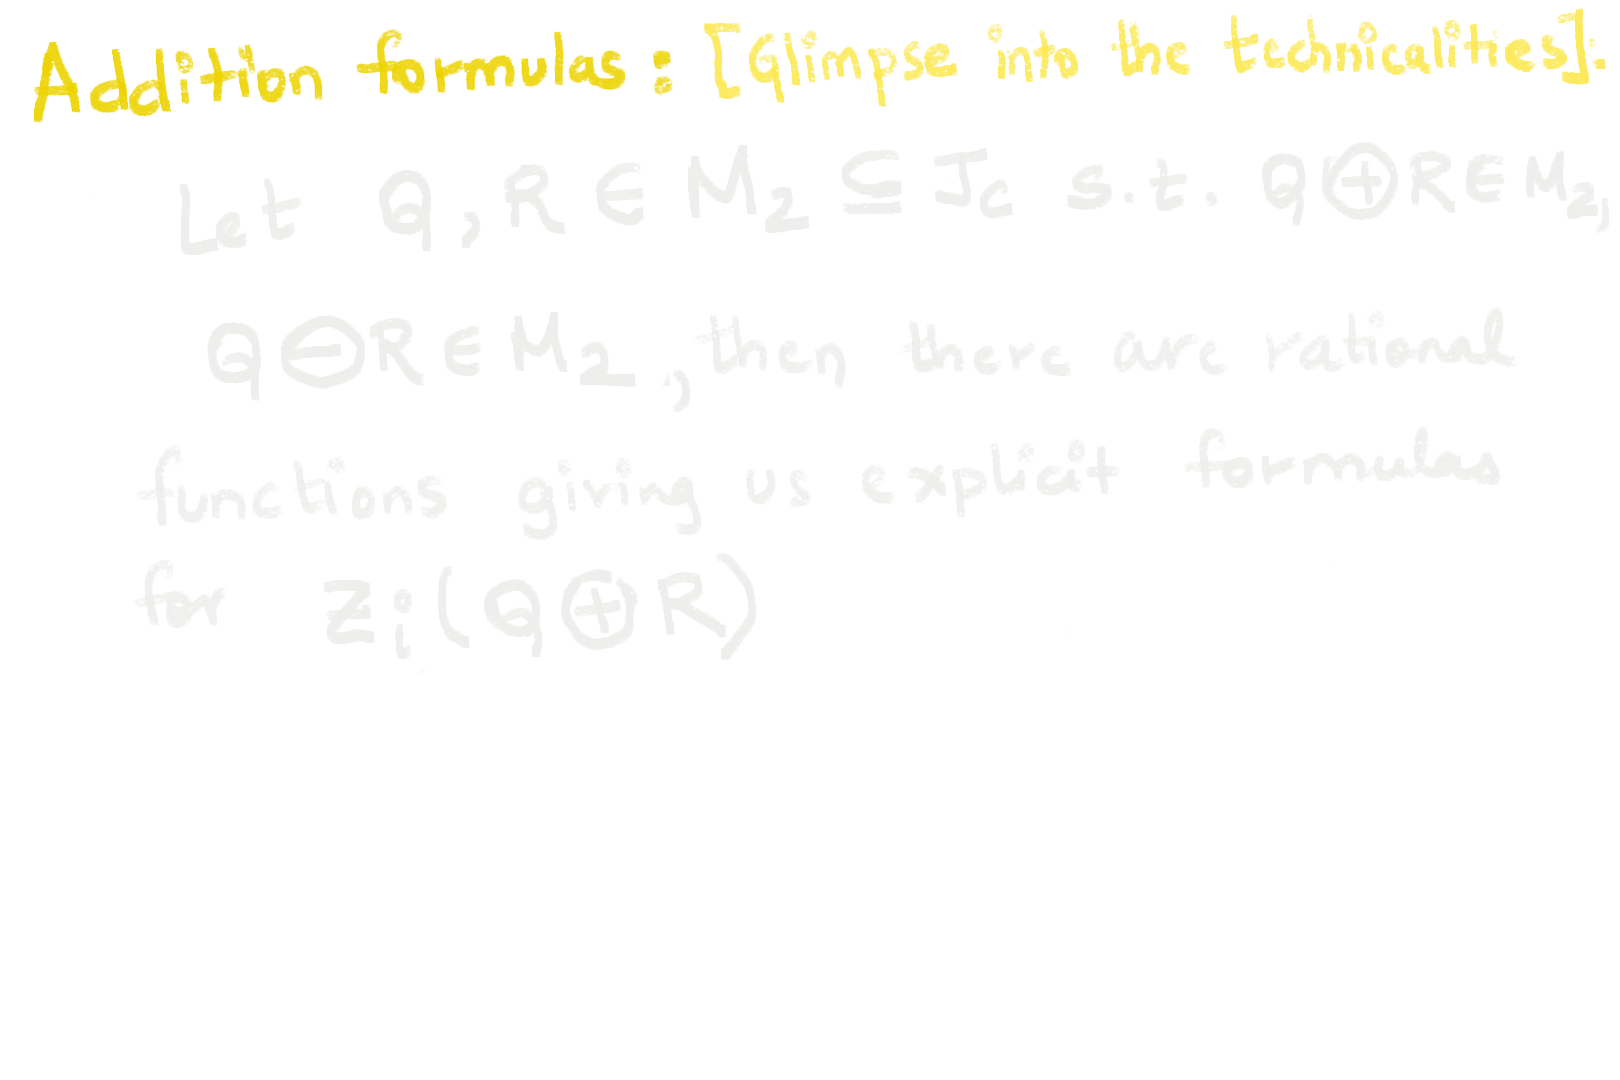 Addition formulas : [Glimpse into the technicalities].
Let Q, R ∈ M₂ ⊆ J_C s.t. Q ⊕ R ∈ M₂,
Q ⊖ R ∈ M₂, then there are rational
functions giving us explicit formulas
for Z_i(Q ⊕ R)